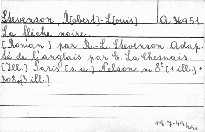 Stevenson (Robert-Louis) A.36951
La flèche noire.
(Roman) par R.-L. Stevenson Adap-
té de l'anglais par E. La Chesnais
(Ill.) Paris (s.a.) Nelson in 8° (1 ill.) +
ill.)
19-7-49